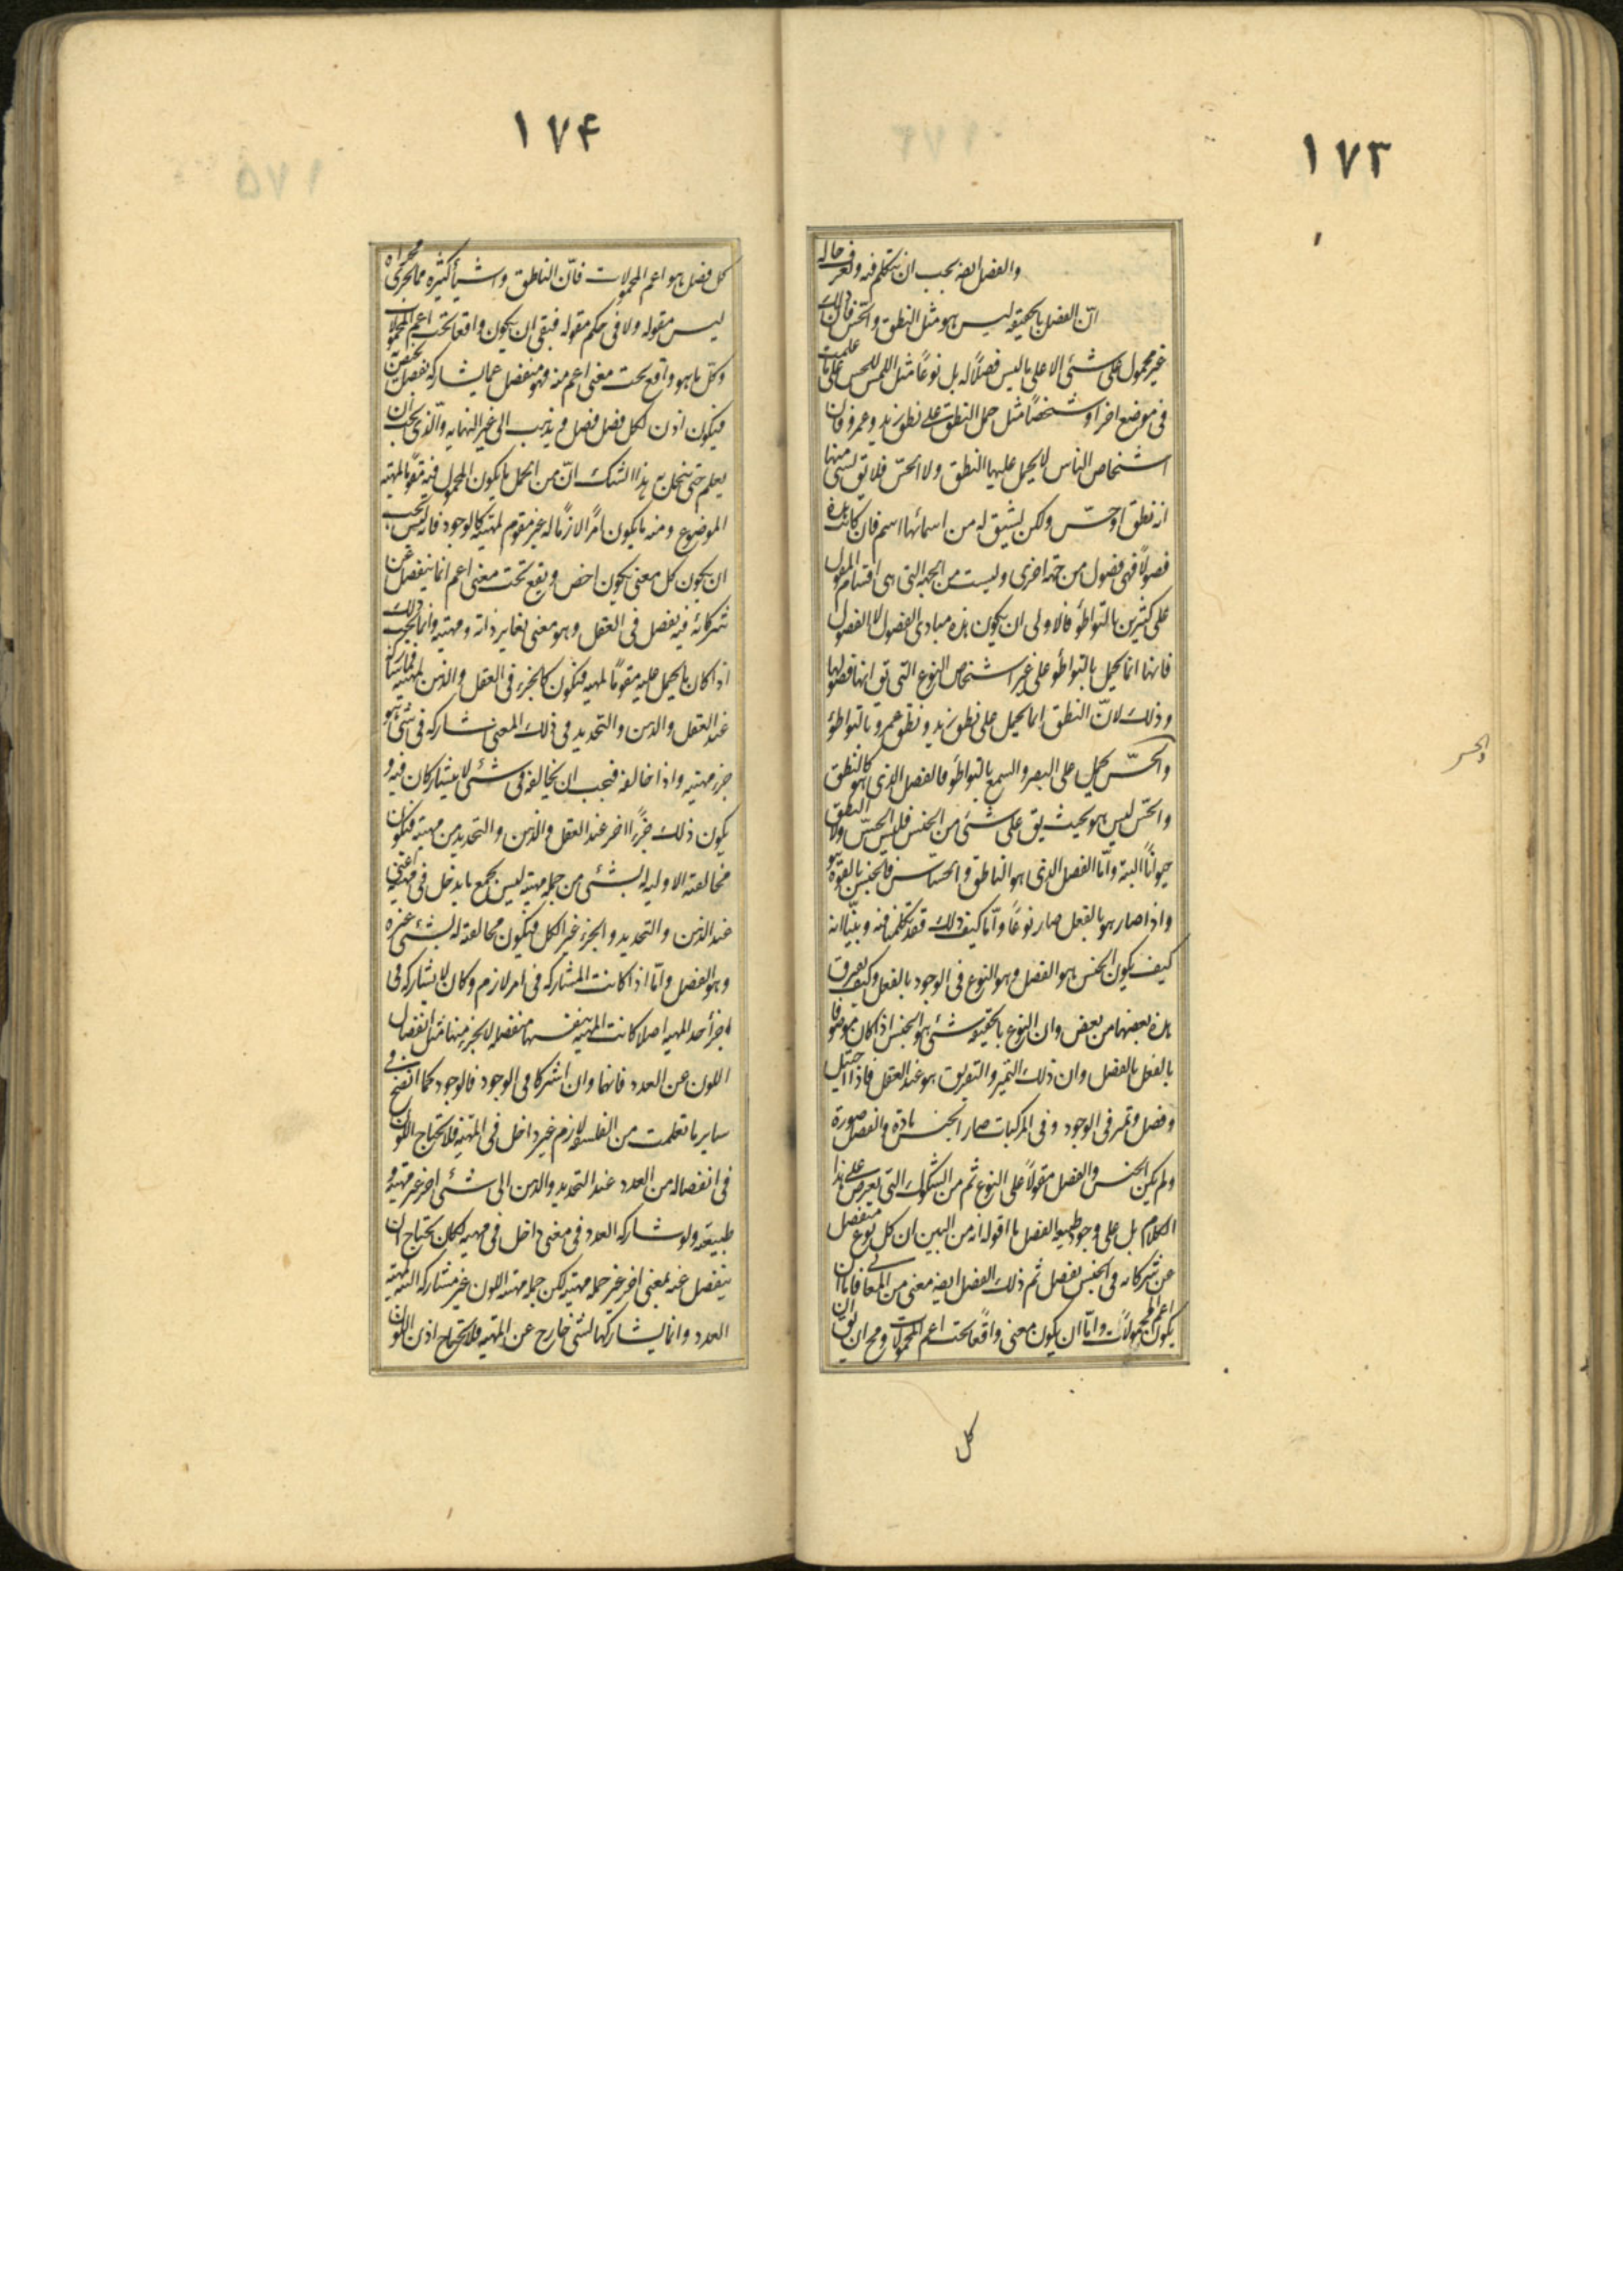 ١٧٣
والفصل ايضه يجب ان نتكلم فيه ونعرف حاله
انّ الفصل بالحقيقه ليس هو مثل النطق والحّس فان ذلك
غير محمول على شئى الا على ما ليس فصلاً له بل نوعاً مثل اللمس للحس على ما علمت
فى موضع اخر او شخصاً مثل حمل النطق على نطق زيد وعمرو فان
اشخاص الناس لا يحمل عليها النطق ولا الحّس فلا يق لشى منها
انه نطق او حّس ولكن يشتق له من اسمائها اسم فان كانت هذه
فصولاً فهى فصول من جهة اخرى وليست من الجهه التى هى اقسام المقول
على كثيرين بالتواطؤ فالاولى ان يكون هذه مبادى الفصول لا الفصول
فانها انما يحمل بالتواطؤ على غير اشخاص النوع التى يق انها فصولها
وذلك لانّ النطق انما يحمل على نطق زيد ونطق عمرو بالتواطؤ
والحّس يحمل على البصر والسمع بالتواطؤ فالفصل الذى هو كالنطق
والحّس ليس هو بحيث يق على شئى من الجنس فليس الحّس ولا النطق
حيواناً البتة وامّا الفصل الذى هو الناطق والحساس فالجنس بالقوة هو
واذا صار هو بالفعل صار نوعاً وامّا كيف ذلك فقد تكلمنا فيه وبيّنا انه
كيف يكون الجنس هو الفصل وهو النوع فى الوجود بالفعل وكيف يفرق
هذه بعضها من بعض وان النوع بالحقيقه شئى هو الجنس اذا كان موصوفا
بالفعل بالفصل وان ذلك التميز والتفريق هو عند العقل فاذا احتيل
وفصل وتميز فى الوجود وفى المركبات صار الجنس مادة والفصل صورة
ولم يكن الجنس والفصل مقولاً على النوع ثم من الشكوك التى يعرض على هذا
الكلام بل على وجود طبيعه الفصل ما اقوله انه من البين ان كل نوع منفصل
عن شركائه فى الجنس بفصل ثم ذلك الفصل ايضه معنى من المعانى فاما ان
يكون اعم المحمولات وامّا ان يكون معنى واقعاً تحت اعم المحمولات ومح ان يق ان
كل
والحس
١٧۴
كل فصل هو اعم المحمولات فانّ الناطق واشيأ كثيره مما يجرى مجراه
ليس مقوله ولا فى حكم مقوله فبقى ان يكون واقعا تحت اعم المحمولات
وكلّ ما هو واقع تحت معنى اعم منه فهو منفصل عما يشاركه بفصل يختص به
فيكون اذن لكل فصل فصل ويذهب الى غير النهايه والّذى يجب ان
يعلم حتى ينحل به هذا الشك انّ من الحمل ما يكون المحمول فيه مقوّما لمهية
الموضوع ومنه ما يكون امراً لازماً له غير مقوم لمهيته كالوجود فانه ليس يجب
ان يكون كل معنى يكون اخص ويقع تحت معنى اعم انما ينفصل عن
شركائه فيه بفصل فى العقل وهو معنى يغاير ذاته ومهيته وانما يجب ذلك
اذا كان ما يحمل عليه مقوماً لمهيه فيكون كالجزء فى العقل والذهن لمهيته فما يشاركه
عند العقل والذهن والتحديد فى ذلك المعنى شاركه فى شئى هو
جزء مهيته واذا خالفه فيجب ان يخالفه فى شئى لا يشاركان فيه و
يكون ذلك جزءاً اخر عند العقل والذهن والتحديد من مهيته فيكون
مخالفته الاوليه له بشئى من جمله مهيته ليس بجميع ما يدخل فى مهيته اعنى
عند الذهن والتحديد والجزء غير الكل فيكون مخالفته له بشئى غيره
وهو الفصل وامّا اذا كانت المشاركه فى امر لازم وكان لا يشاركه فى
اجزأ حد المهيه اصلا كانت المهيه بنفسها منفصله لا بجزء منها مثل انفصال
اللون عن العدد فانهما وان اشتركا فى الوجود فالوجود كما اتضح فى
ساير ما تعلمت من الفلسفه لازم غير داخل فى المهية فلا يحتاج اللون
فى انفصاله من العدد عند التحديد والذهن الى شئى اخر غير مهيته و
طبيعته ولو شاركه العدد فى معنى داخل فى مهيته لكان يحتاج ان
ينفصل عنه بمعنى اخر غير جمله مهيته لكن جمله مهيته اللون غير مشاركه البته لمهية
العدد وانما يشاركها بشئ خارج عن المهيه فلا يحتاج اذن اللون